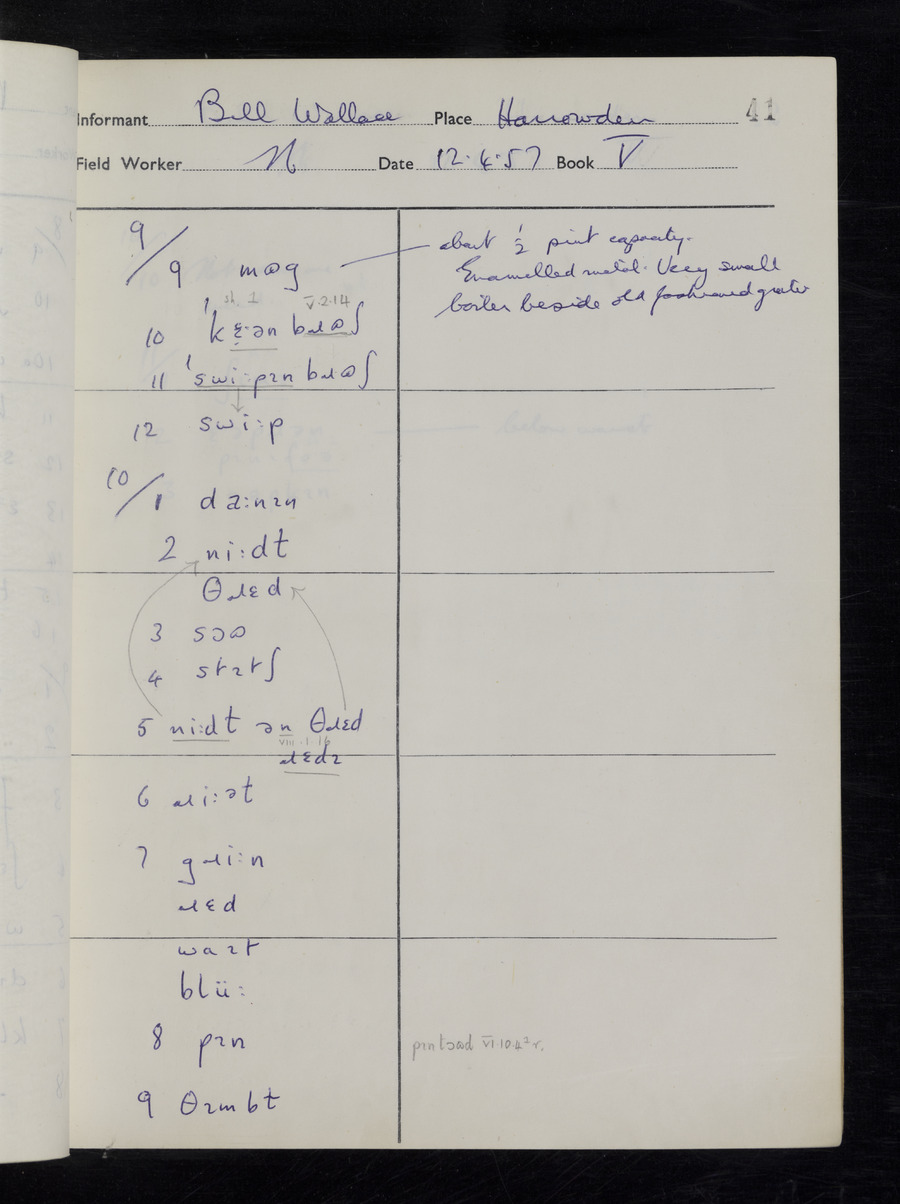 Informant Bill Wallace Place Harrowden 41
Field Worker N Date 12.4.57 Book V
9/
9 mɷg about ½ pint capacity.
Enamelled metal. Very small
boiler beside old fashioned grate
sh. 1 V.2.14
10 ˈkɛ̣·ən bɹɷʃ
11 ˈswi·pɪn bɹɷʃ
12 swi:p
10/
1 da:nɪn
2 ni:dɫ
θɹɛd
3 sɔɷ
4 stɪtʃ
5 ni:dɫ ən θɹɛd
VIII.1.16
ɹɛdɪ
6 ɹi:əɫ
7 gɹi:n
ɹɛd
waɪt
blü:
8 pɪn pɪntɔəd VI.10.4² r.
9 θɪmbɫ